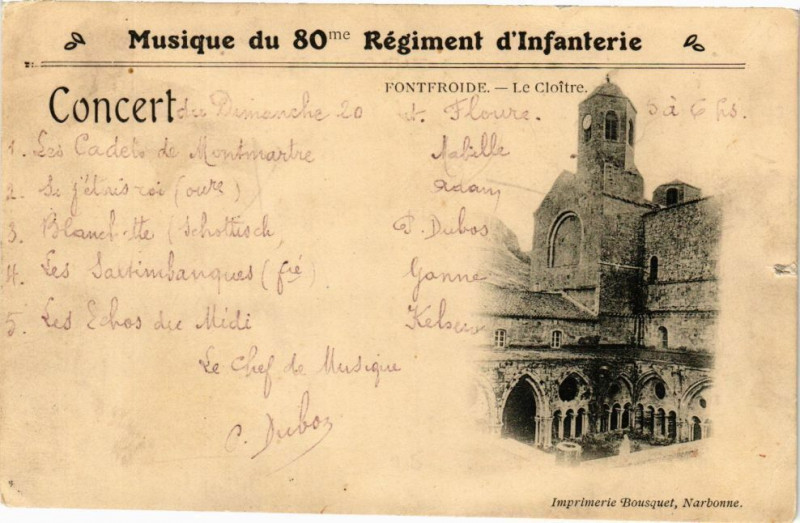 Musique du 80me Régiment d'Infanterie
FONTFROIDE. — Le Cloître.
Concert du Dimanche 20 Floure. 5 à 6 hs.
1. Les Cadets de Montmartre Mabille
2. Si j'étais roi (ouvre) Adam
3. Blanchette (Schottisch P. Dubos
4. Les Saltimbanques (fié) Ganne
5. Les Echos du Midi Kelsen
Le Chef de Musique
P. Dubos
Imprimerie Bousquet, Narbonne.